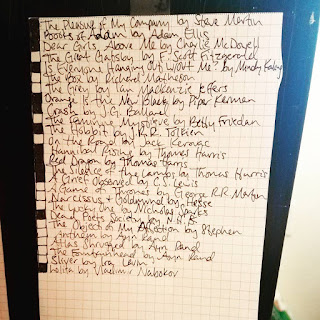 The Pleasure of My Company by Steve Martin
Books of Adam by Adam Ellis
Dear Girls Above Me by Charlie McDowell
The Great Gatsby by F. Scott Fitzgerald
Is Everyone Hanging Out Without Me? by Mindy Kaling
The Box by Richard Matheson
The Grey by Ian Mackenzie Jeffers
Orange Is the New Black by Piper Kerman
Crash by J.G. Ballard
The Feminine Mystique by Betty Friedan
The Hobbit by J.R.R. Tolkien
On the Road by Jack Kerouac
Hannibal Rising by Thomas Harris
Red Dragon by Thomas Harris
The Silence of the Lambs by Thomas Harris
A Grief Observed by C.S. Lewis
A Game of Thrones by George R.R. Martin
Narcissus & Goldmund by Hesse
The Lucky One by Nicholas Sparks
Dead Poets Society by N.H.
The Object of My Affection by Stephen
Anthem by Ayn Rand
Atlas Shrugged by Ayn Rand
The Fountainhead by Ayn Rand
Sliver by Ira Levin
Lolita by Vladimir Nabokov